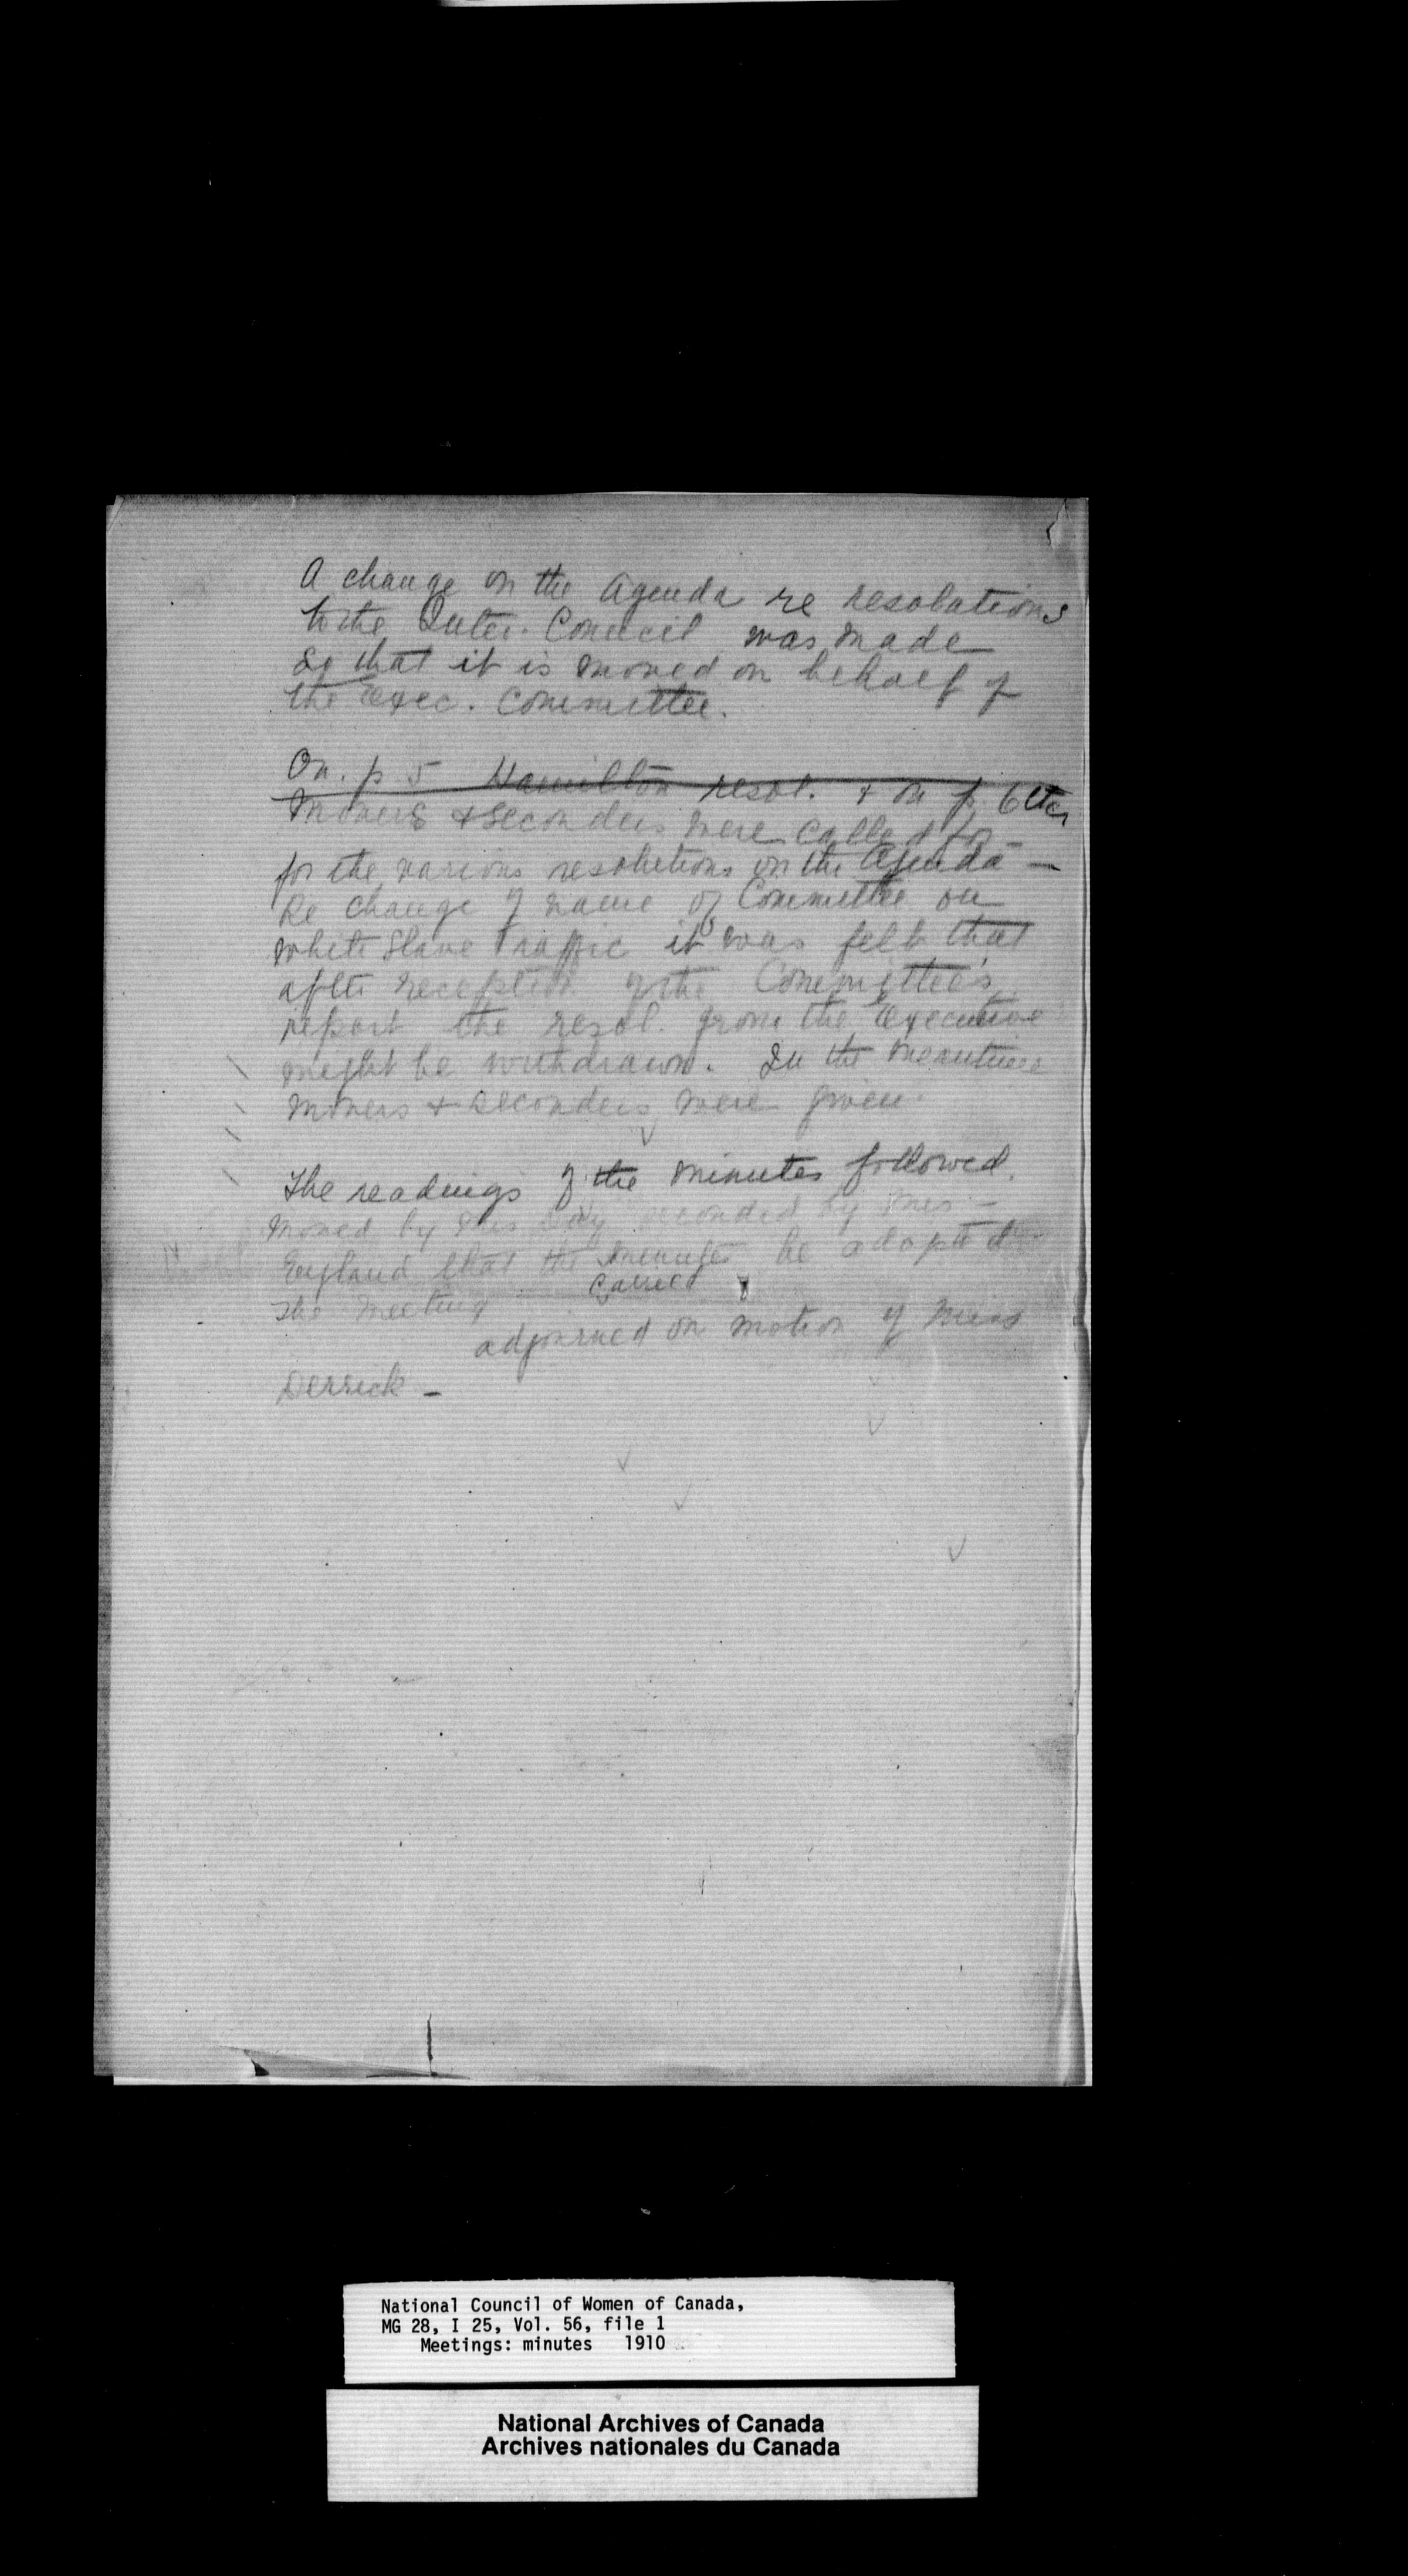 A change on the Agenda re resolutions
to the Inter. Council was made
so that it is moved on behalf of
the Exec. Committee.
On. p 5 Hamilton resol. & on p. 6 etc
Movers & seconders were called for
for the various resolutions on the Agenda —
Re change of name of Committee on
White Slave Traffic it was felt that
after reception of the Committee's
report the resol. from the Executive
might be withdrawn. In the meantime
movers & seconders were given.
The readings of the minutes followed.
Moved by Mrs Day seconded by Mrs —
England that the minutes be adopted —
Carried
The meeting
adjourned on motion of Miss
Derrick —
National Council of Women of Canada,
MG 28, I 25, Vol. 56, file 1
Meetings: minutes 1910
National Archives of Canada
Archives nationales du Canada